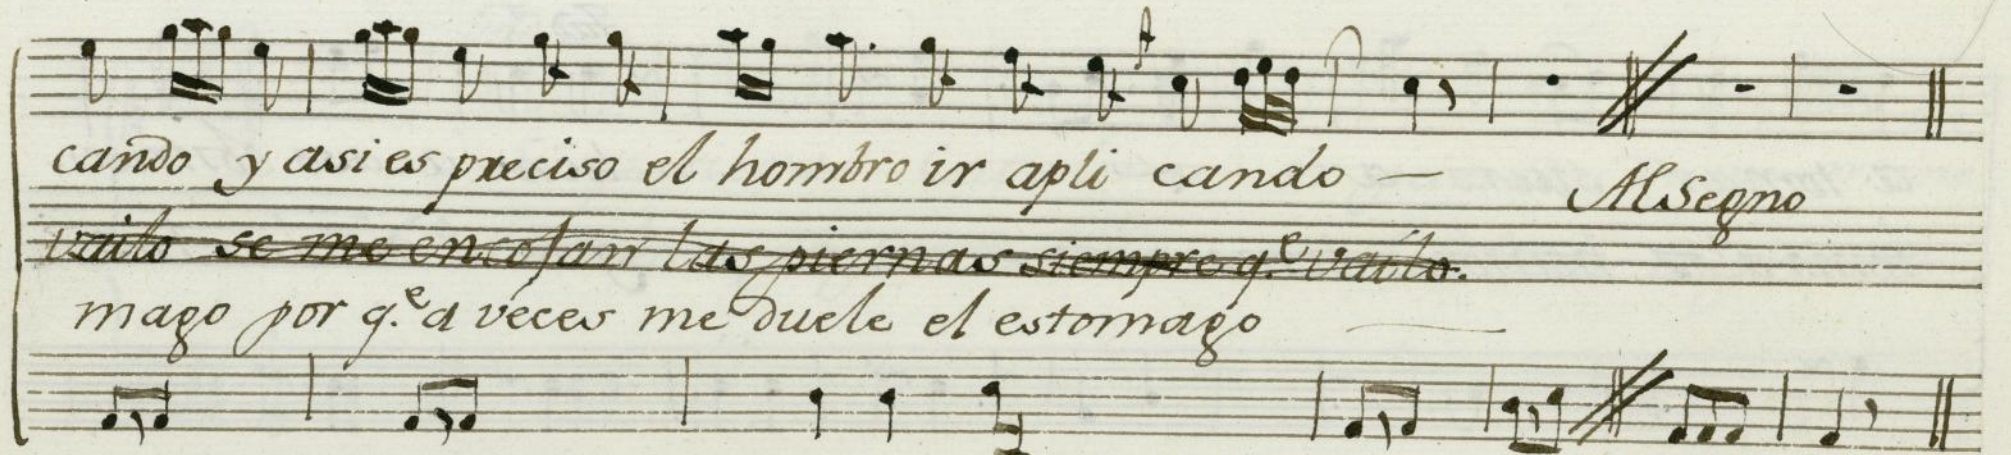 cando y asi es preciso el hombro ir apli cando —
Al Segno
vailo se me encojan las piernas siempre q.e vailo.
mago por q.e a veces me duele el estomago